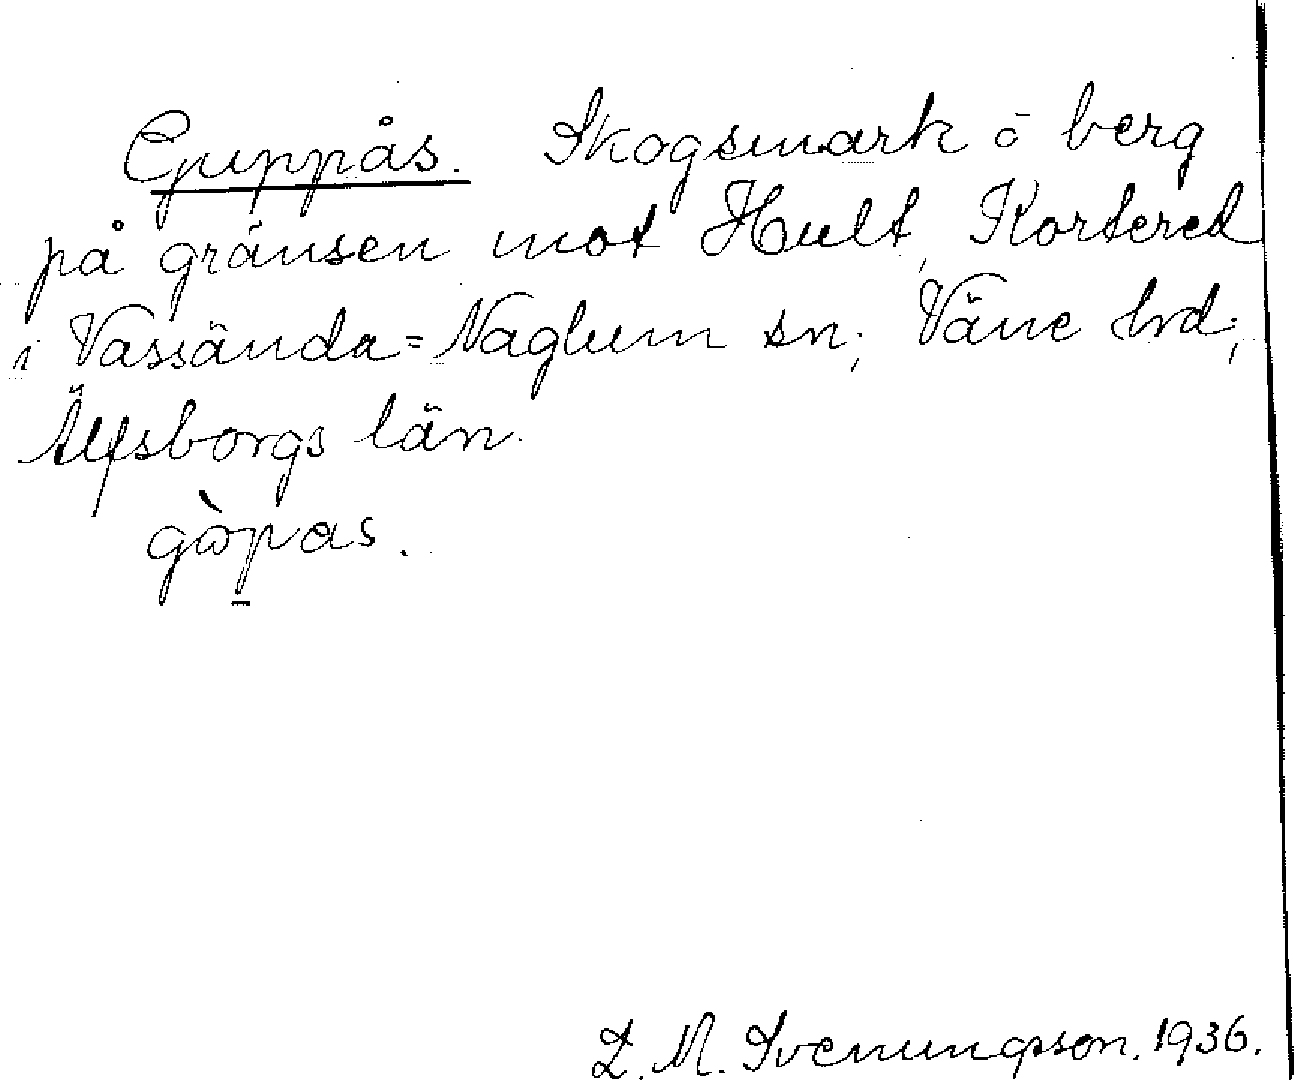 Guppås. Skogsmark o berg
på gränsen mot Hult, Kortered
i Vassända=Naglum sn; Väne hrd;
Älfsborgs län.
gὼpas.
L. M. Svenungsson. 1936.